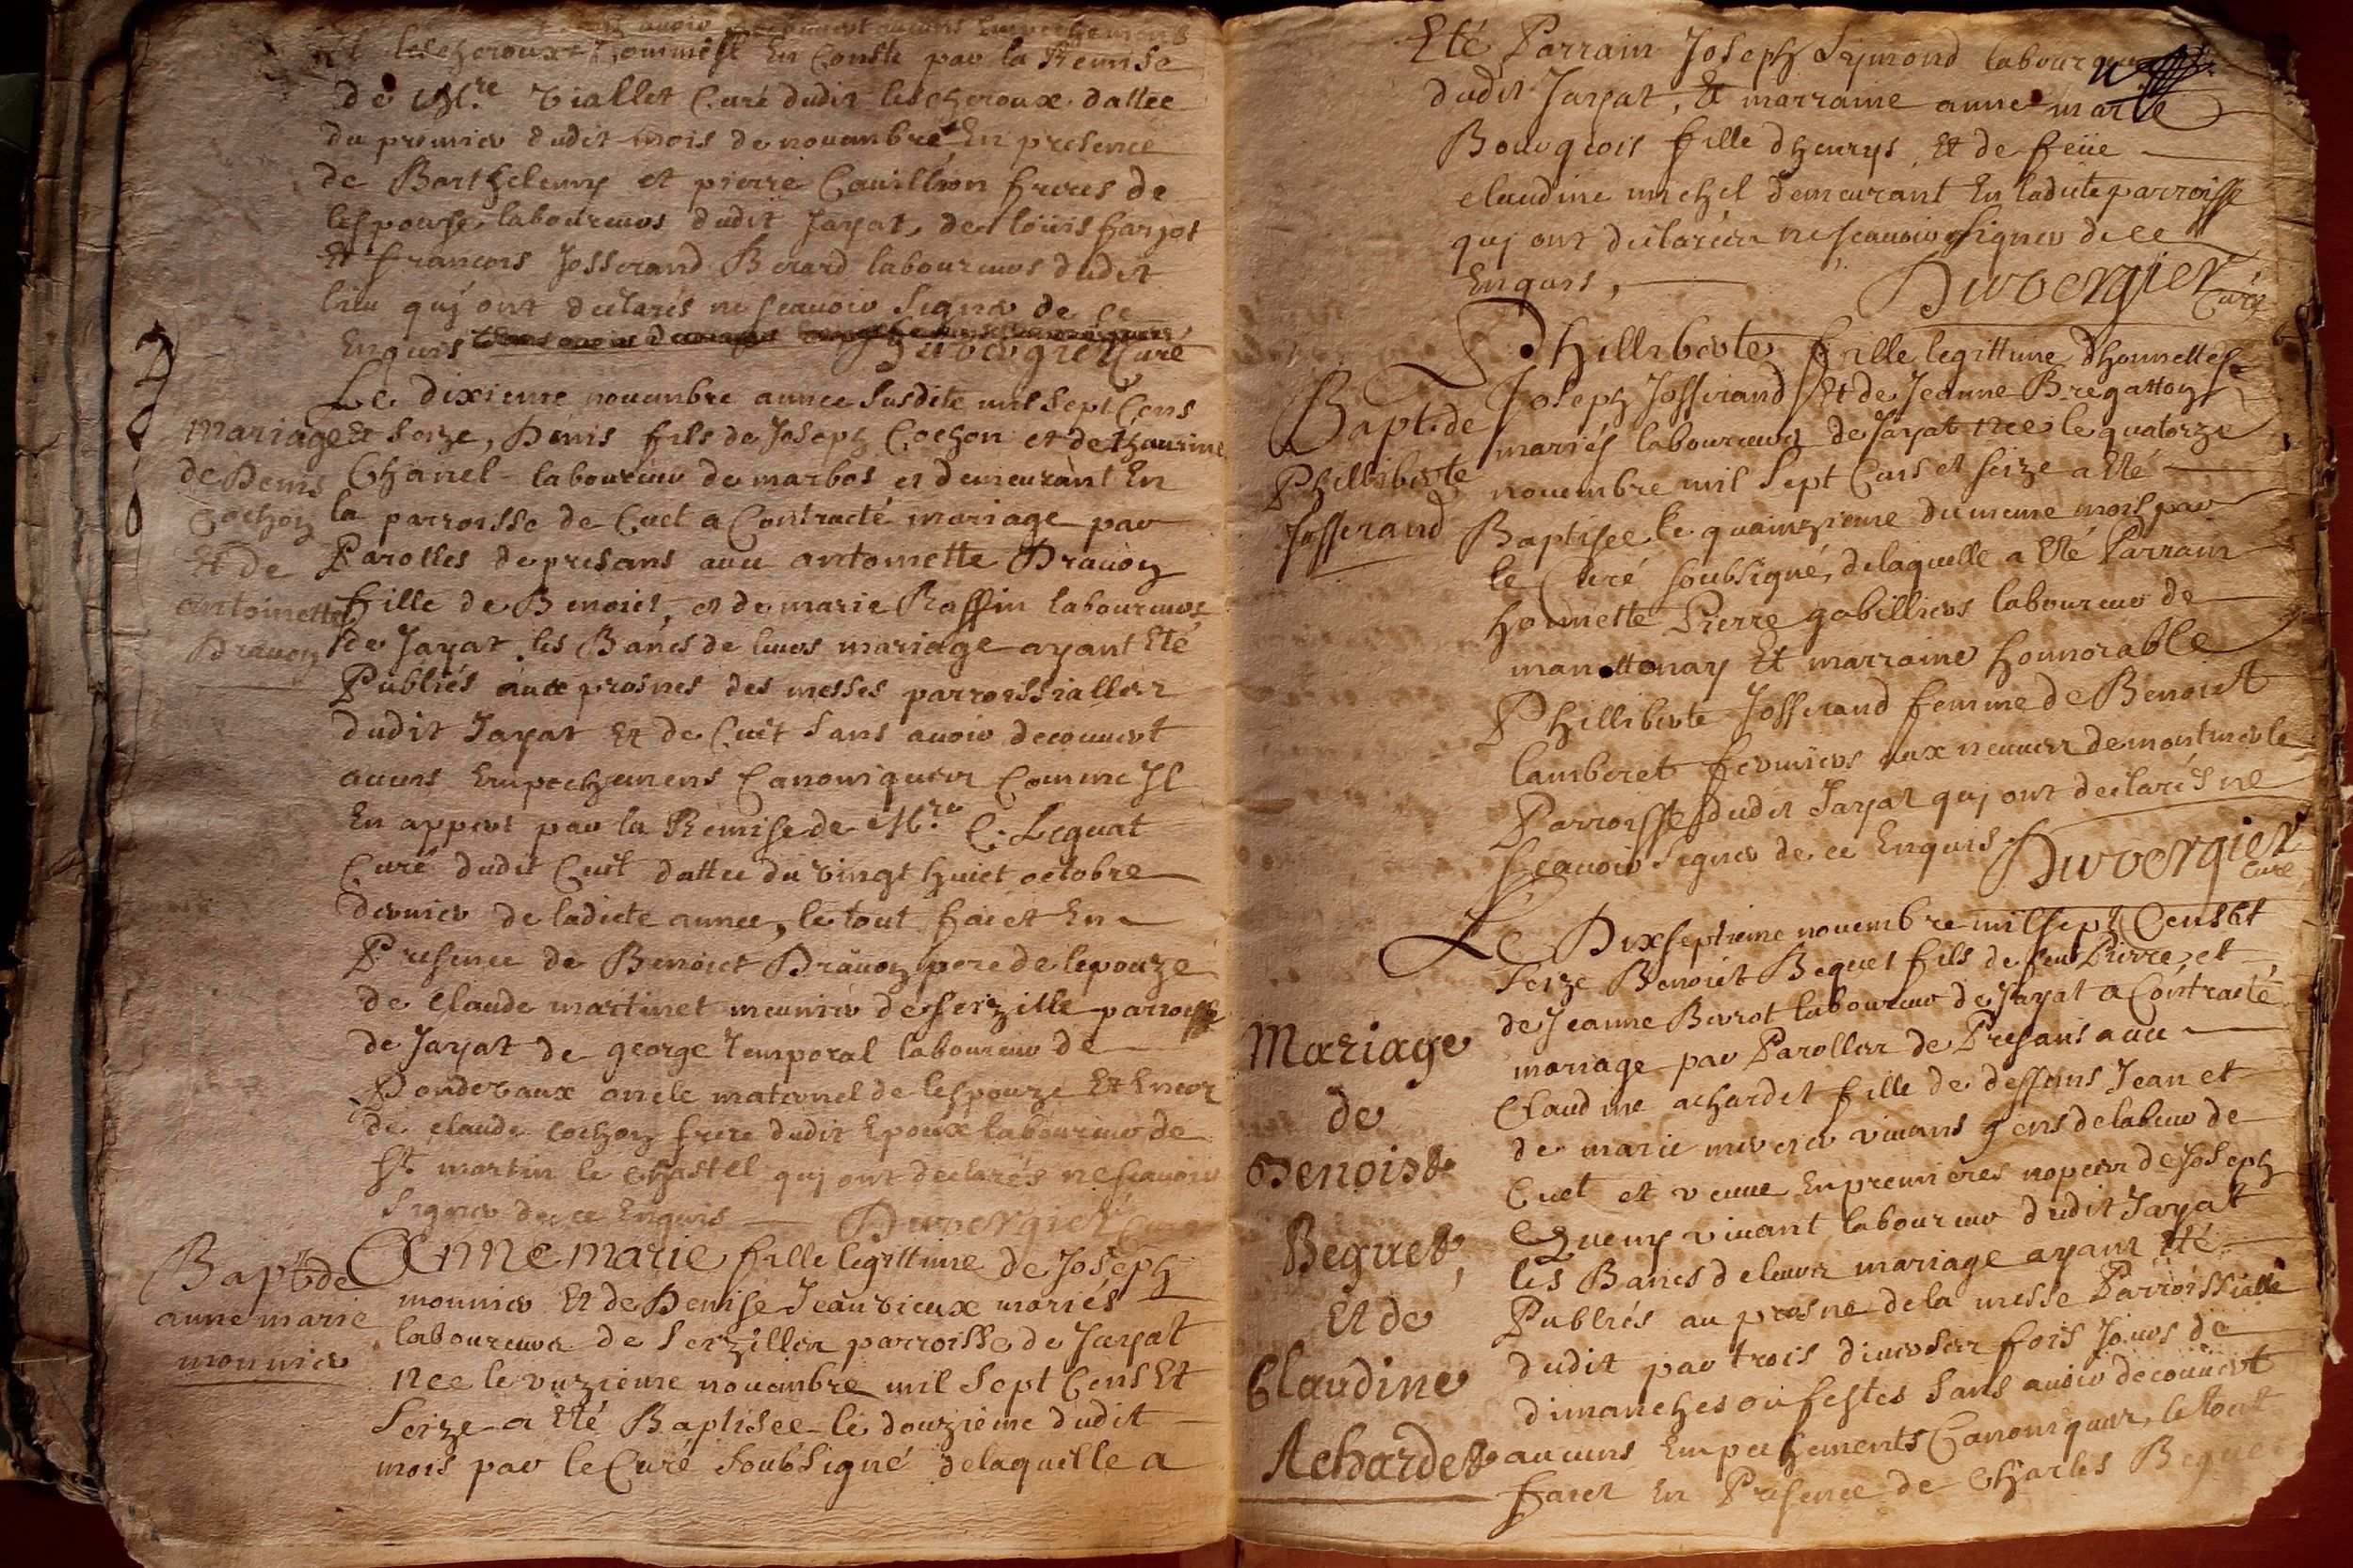 sans avoir decouvert aucuns Empechemens
lescheroux Comme Il En Conste par la Remise
de M.re Viallet Curé dudit lescheroux dattée
du premier dudit mois de novembre En presence
de Barthelemy et pierre Cavillion freres de
lespouse laboureurs dudit Jayat, de loüis farjot
Et francois Josserand Berard laboureurs dudit
lieu quj ont declarés ne scavoir Signer de ce
Enquis Duvergier Curé
Le dixieme novembre annee Susdite mil Sept Cens
Mariage
de Denis
Cochon
Et de
antoinette
Dravon
Et Seize, Denis fils de Joseph Cochon et de thaurine
Chanel laboureur de marbos et demeurant En
la parroisse de Cuet a Contracté mariage par
Parolles de presans avec antoinette Dravon
fille de Benoict, et de marie Raffin laboureurs
de Jayat les Bancs de leurs mariage ayant Eté
Publiés aux prosnes des messes parroissialles
dudit Jayat Et de Cuet Sans avoir decouvert
aucuns Empechemens Canoniques Comme Jl
En appert par la Remise de M.re C. Lequat
Curé dudit Cuet dattee du vingt huict octobre
dernier de ladicte annee, le tout faict En
Presence de Benoict Dravon pere de lepouze
de Claude martinet meunier de Serzille parroisse
de Jayat de george Temporal laboureur de
Pondevaux oncle maternel de lespouze Et Encor
de claude cochon frere dudit Epoux laboureur de
St martin le Chastel quj ont declarés ne scavoir
Signer de ce Enquis Duvergier Curé
Bapt. de
anne marie
monnier
Anne marie fille legittime de Joseph
monnier Et de Denise Jeanvieux mariés
laboureurs de Serzilles parroisse de Jayat
Nee le unzieme novembre mil Sept Cens Et
Seize a Eté Baptisee le douzieme dudit
mois par le Curé Soubsigné delaquelle a
Eté Parrain Joseph Symond laboureur
dudit Jayat, Et marraine anne marie
Bourgeois fille dhenrys Et de feüe
claudine michel demeurant En ladicte parroisse
quj ont declarées ne scavoir signer de ce
Enquis, Duvergier Curé
Bapt. de
Phelliberte
Josserand
Phelliberte fille legittime dhonnettes
Joseph Josserand Et de Jeanne Bregatton
mariés laboureurs de Jayat nee le quatorze
novembre mil Sept Cens et seize a Eté
Baptisee le quainzieme du meme mois par
le Curé Soubsigné, delaquelle a Eté Parrain
honnette Pierre gobilliers laboureur de
mantenay Et marraine honnorable
Phelliberte Josserand femme de Benoict
lamberet fermiers aux neuves de montmerle
Parroisse dudit Jayat quj ont declarés ne
scavoir Signer de ce Enquis Duvergier Curé
Mariage
de
Benoist
Beguet,
Et de
Claudine
Achardet
Le Dixseptieme novembre mil sept Cens Et
Seize Benoict Beguet fils de feu Pierre, et
de Jeanne Berrot laboureur de Jayat a Contracté
mariage par Parolles de Presans avec
Claudine achardet fille de deffuns Jean et
de marie mercier vivans gens de labeur de
Cuet et veuve En premieres nopces de Joseph
Queny vivant laboureur dudit Jayat
les Bancs de leurs mariage ayant Eté
Publiés au prosne de la messe Parroissialle
dudit par trois diverses fois Jours de
dimanches ou festes Sans avoir decouvert
aucuns Empechements Canoniques, le tout
faict En Presence de Charles Beguet